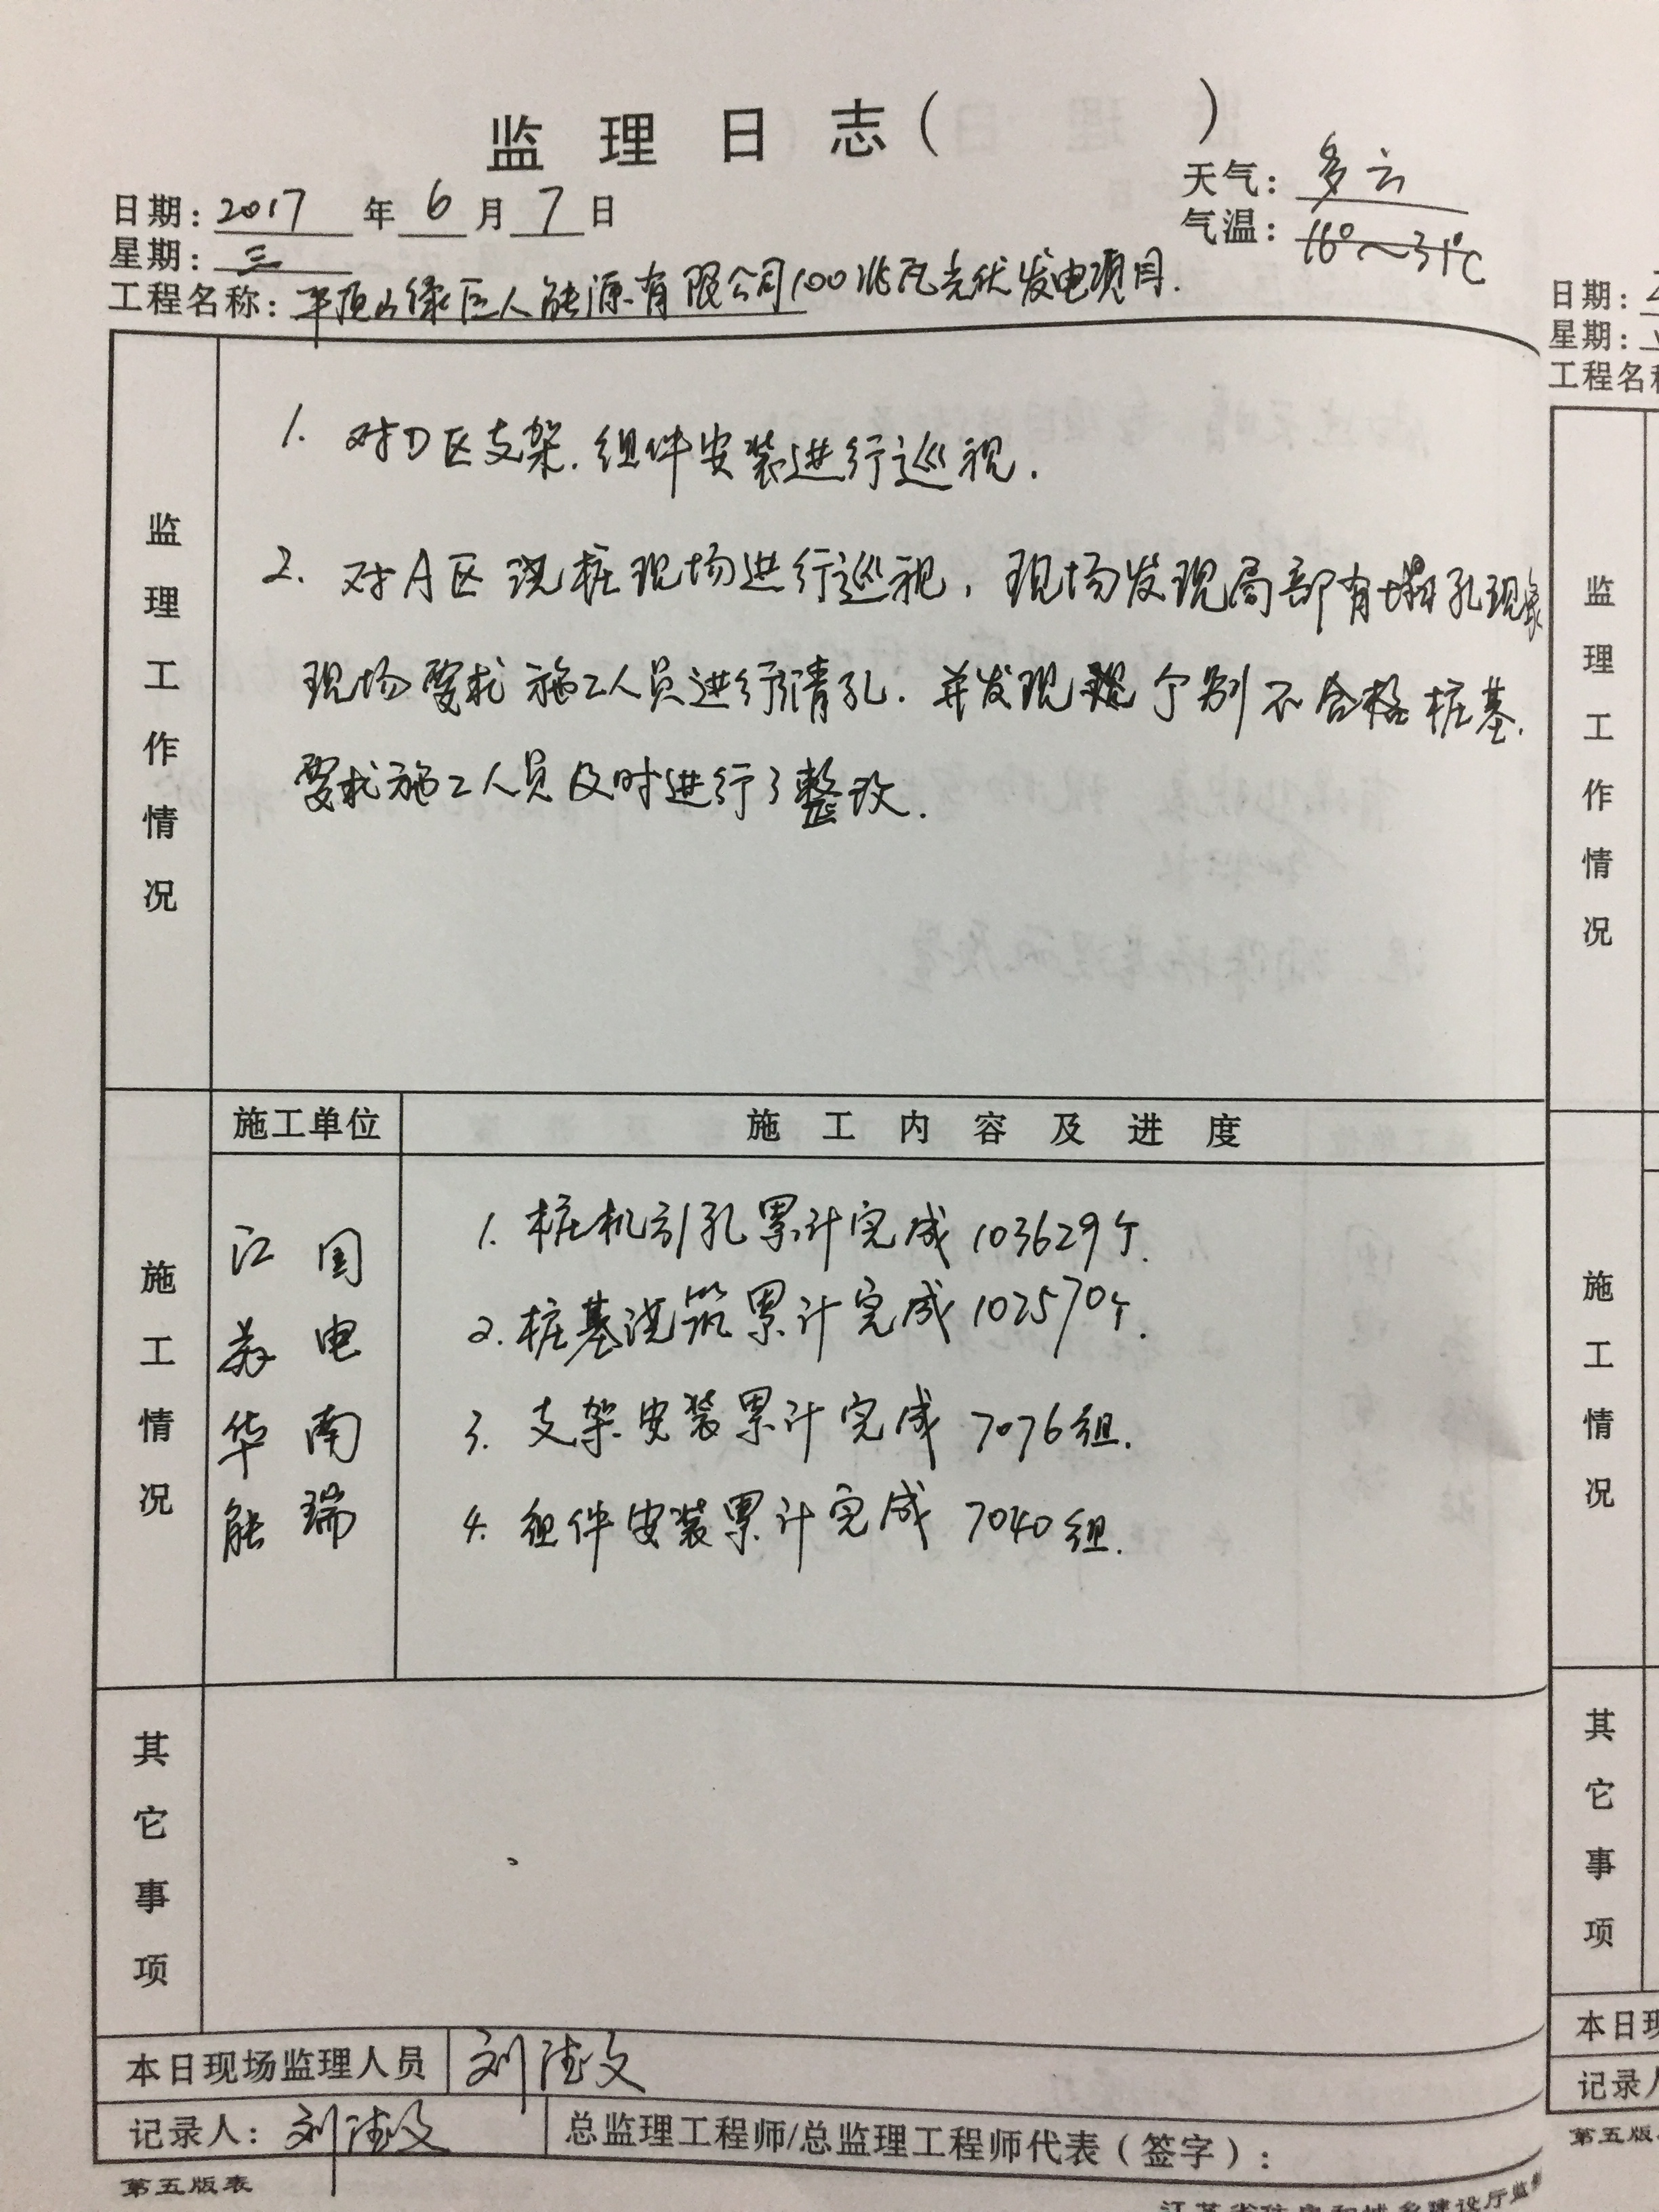 监理日志（ ）
日期：2017年6月7日
天气：多云
星期：三
气温：16°～31℃
工程名称：平顶山绿巨人能源有限公司100兆瓦光伏发电项目.
监理工作情况
1. 对D区支架.组件安装进行巡视.
2. 对A区浇桩现场进行巡视，现场发现局部有塌孔现象
现场要求施工人员进行清孔.并发现 个别不合格桩基.
要求施工人员及时进行了整改.
施工情况
施工单位
施工内容及进度
江苏华能
国电南瑞
1. 桩机引孔累计完成103629个.
2. 桩基浇筑累计完成102570个.
3. 支架安装累计完成7076组.
4. 组件安装累计完成7040组.
其它事项
本日现场监理人员 刘 文
记录人：刘 文
总监理工程师/总监理工程师代表（签字）：
第五版表
日期：
星期：
工程名
监理工作情况
施工情况
其它事项
本日现
记录
第五版